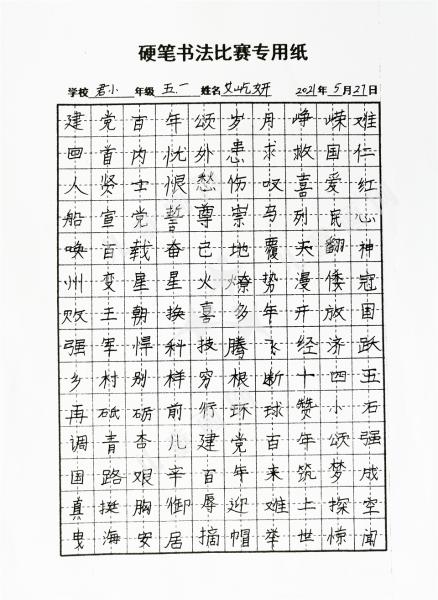 硬笔书法比赛专用纸
学校 君小 年级 五.一 姓名 艾屿妍 2021年5月27日
建党百年颂岁月峥嵘难
回首内忧外患求救国仁
人贤士恨愁伤叹喜爱红
船宣党誓尊崇马列民心
唤百载奋己地覆天翻神
州变星星火燎势漫倭寇
败王朝换喜多年开放国
强军悍科技腾飞经济跃
乡村别样穷根断十四五
再砥砺前行环球赞小石
调青杏儿建党百年颂强
国路艰辛百年来筑梦成
真挺胸御辱迎难上探空
曳海安居摘帽举世惊闻